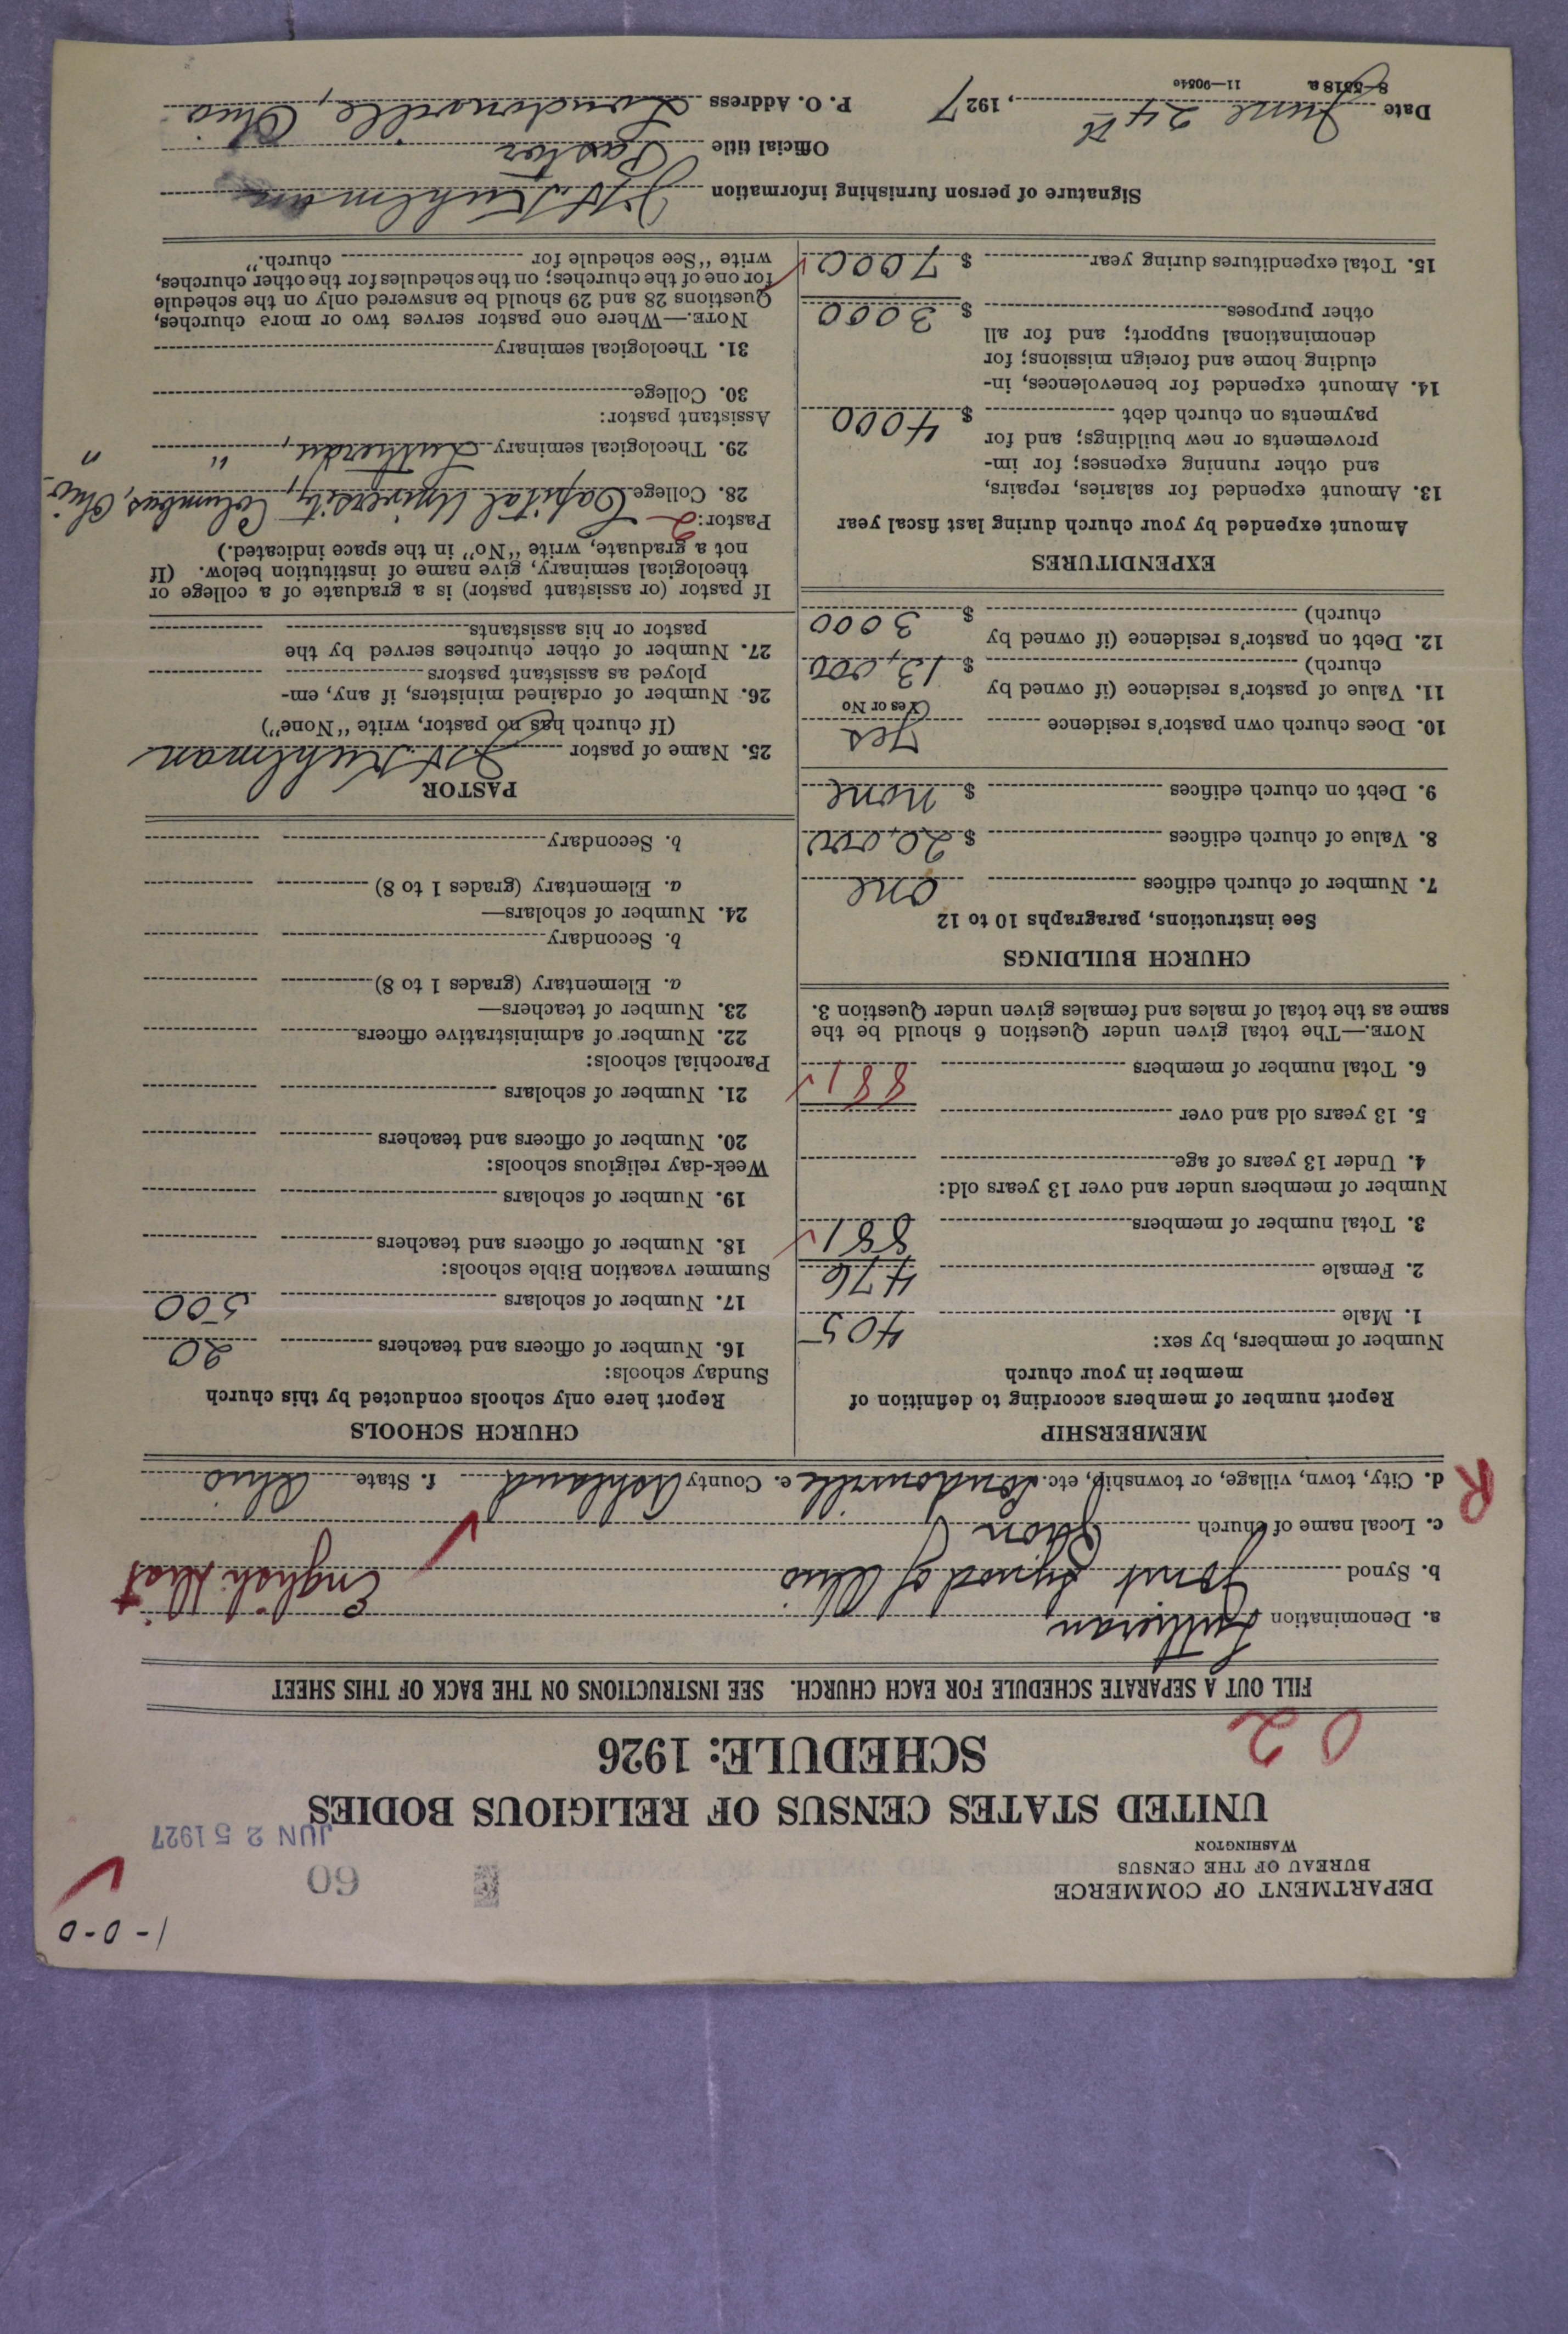 1-0-0
DEPARTMENT OF COMMERCE
BUREAU OF THE CENSUS
WASHINGTON
60
JUN 25 1927
UNITED STATES CENSUS OF RELIGIOUS BODIES
SCHEDULE: 1926
02
FILL OUT A SEPARATE SCHEDULE FOR EACH CHURCH. SEE INSTRUCTIONS ON THE BACK OF THIS SHEET
a. Denomination Lutheran
b. Synod Joint Synod of Ohio English Dist
c. Local name of church Zion
R
d. City, town, village, or township, etc. Loudonville e. County Ashland f. State Ohio
MEMBERSHIP
Report number of members according to definition of
member in your church
Number of members, by sex:
1. Male 405
2. Female 476
3. Total number of members 881
Number of members under and over 13 years old:
4. Under 13 years of age
5. 13 years old and over
6. Total number of members 881
NOTE.—The total given under Question 6 should be the
same as the total of males and females given under Question 3.
CHURCH BUILDINGS
See instructions, paragraphs 10 to 12
7. Number of church edifices one
8. Value of church edifices $ 20,000
9. Debt on church edifices $ none
10. Does church own pastor's residence Yes
(Yes or No
11. Value of pastor's residence (if owned by
church) $ 13,000
12. Debt on pastor's residence (if owned by
church) $ 3000
EXPENDITURES
Amount expended by your church during last fiscal year
13. Amount expended for salaries, repairs,
and other running expenses; for im-
provements or new buildings; and for
payments on church debt $ 4000
14. Amount expended for benevolences, in-
cluding home and foreign missions; for
denominational support; and for all
other purposes $ 3000
15. Total expenditures during year $ 7000
CHURCH SCHOOLS
Report here only schools conducted by this church
Sunday schools:
16. Number of officers and teachers 20
17. Number of scholars 500
Summer vacation Bible schools:
18. Number of officers and teachers
19. Number of scholars
Week-day religious schools:
20. Number of officers and teachers
21. Number of scholars
Parochial schools:
22. Number of administrative officers
23. Number of teachers—
a. Elementary (grades 1 to 8)
b. Secondary
24. Number of scholars—
a. Elementary (grades 1 to 8)
b. Secondary
PASTOR
25. Name of pastor Kuhlman
(If church has no pastor, write "None")
26. Number of ordained ministers, if any, em-
ployed as assistant pastors
27. Number of other churches served by the
pastor or his assistants
If pastor (or assistant pastor) is a graduate of a college or
theological seminary, give name of institution below. (If
not a graduate, write "No" in the space indicated.)
Pastor: 2
28. College Capital University, Columbus, Ohio.
29. Theological seminary Lutheran, " "
Assistant pastor:
30. College
31. Theological seminary
NOTE.—Where one pastor serves two or more churches,
Questions 28 and 29 should be answered only on the schedule
for one of the churches; on the schedules for the other churches,
write "See schedule for church."
Signature of person furnishing information Kuhlman
Official title Pastor
Date June 24th, 1927 P. O. Address Loudonville, Ohio
8-5518a 11—9054o